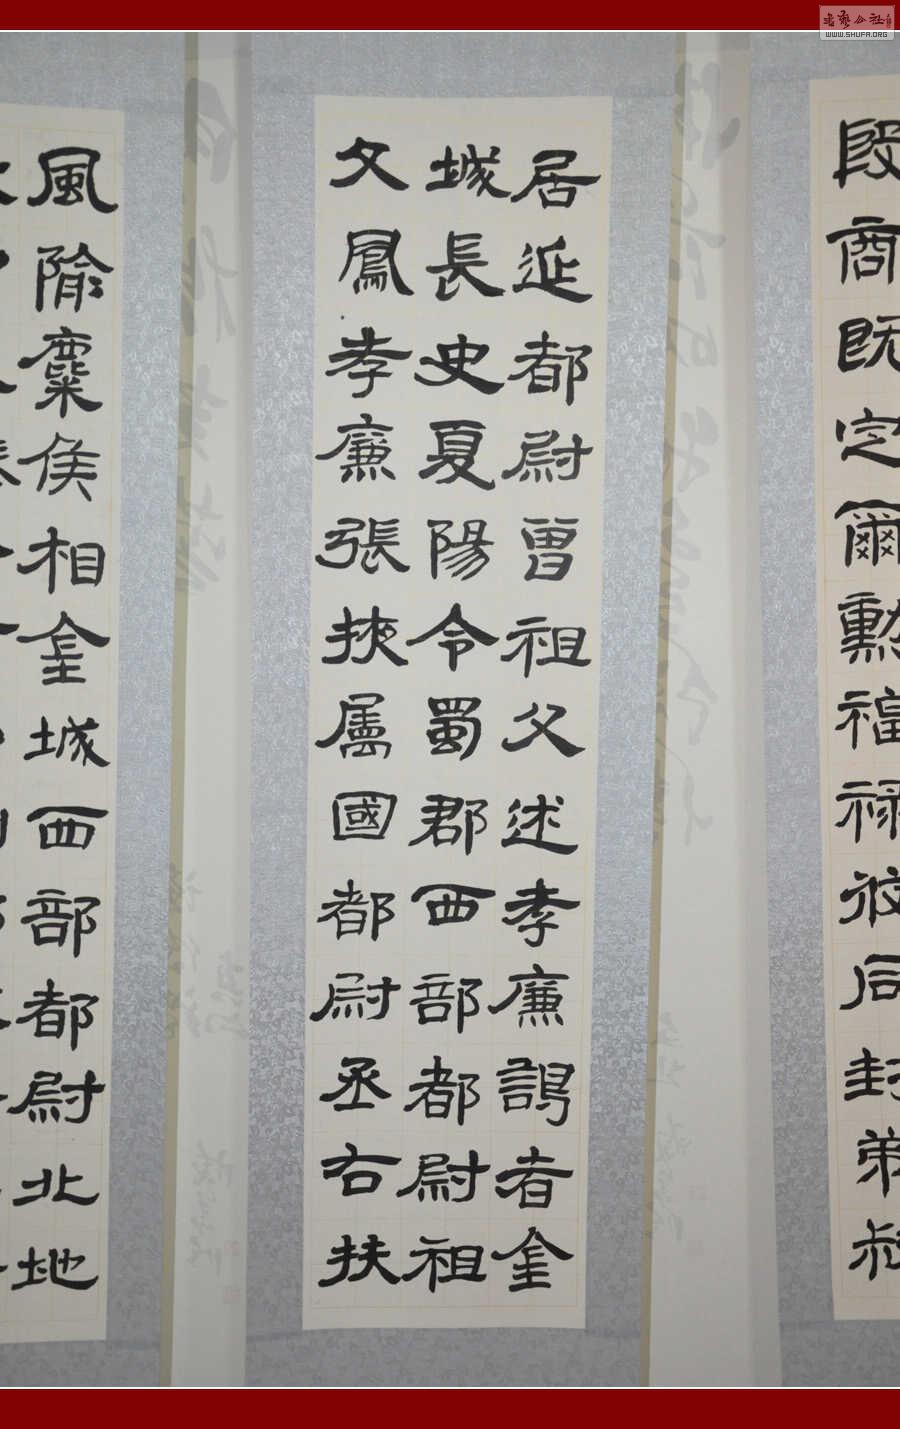 WWW.SHUFA.ORG
段商既定爾勳福祿攸同封弟叔
居延都尉曾祖父述孝廉謁者金
城長史夏陽令蜀郡西部都尉祖
父鳳孝廉張掖屬國都尉丞右扶
風隃麋侯相金城西部都尉北地